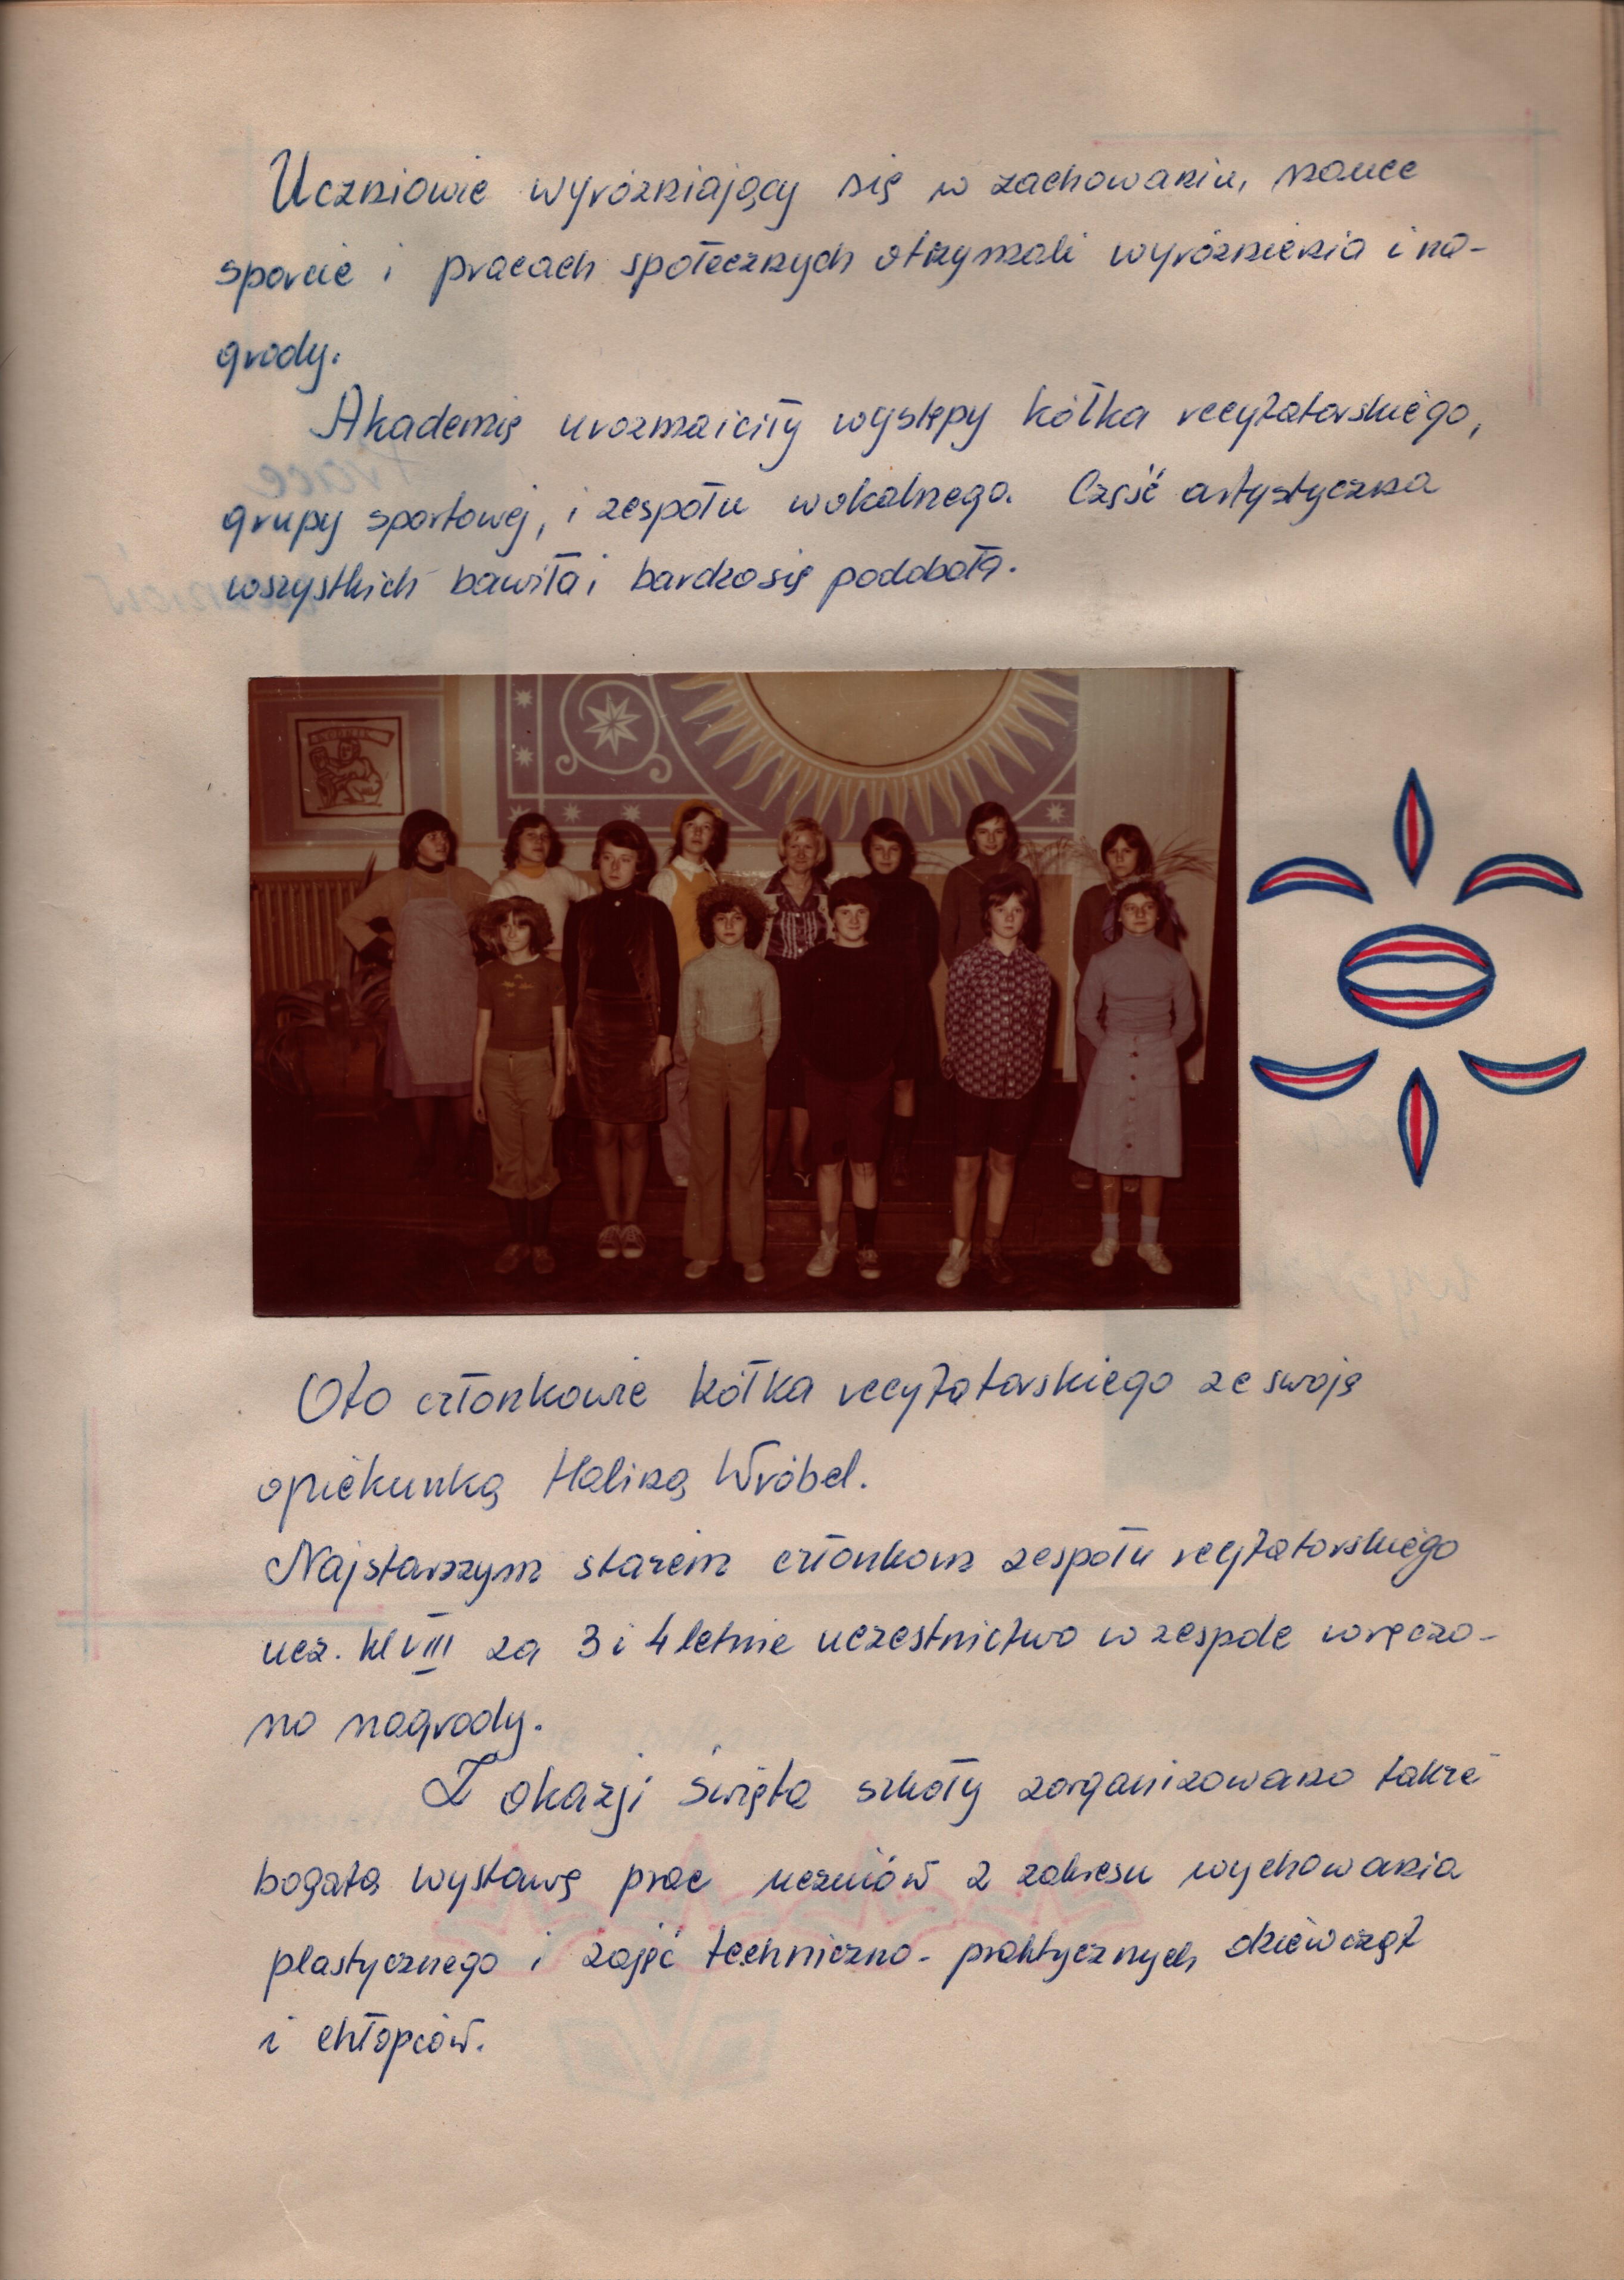 Uczniowie wyróżniający się w zachowaniu, nauce
sporcie i pracach społecznych otrzymali wyróżnienia i na-
grody.
Akademię urozmaiciły występy kółka recytatorskiego,
grupy sportowej, i zespołu wokalnego. Część artystyczna
wszystkich bawiła i bardzo się podobała.
Oto członkowie kółka recytatorskiego ze swoją
opiekunką Haliną Wróbel.
Najstarszym stażem członkom zespołu recytatorskiego
ucz. kl VIII za 3 i 4 letnie uczestnictwo w zespole wręczo-
no nagrody.
Z okazji święta szkoły zorganizowano także
bogatą wystawę prac uczniów z zakresu wychowania
plastycznego i zajęć techniczno-praktycznych dziewcząt
i chłopców.